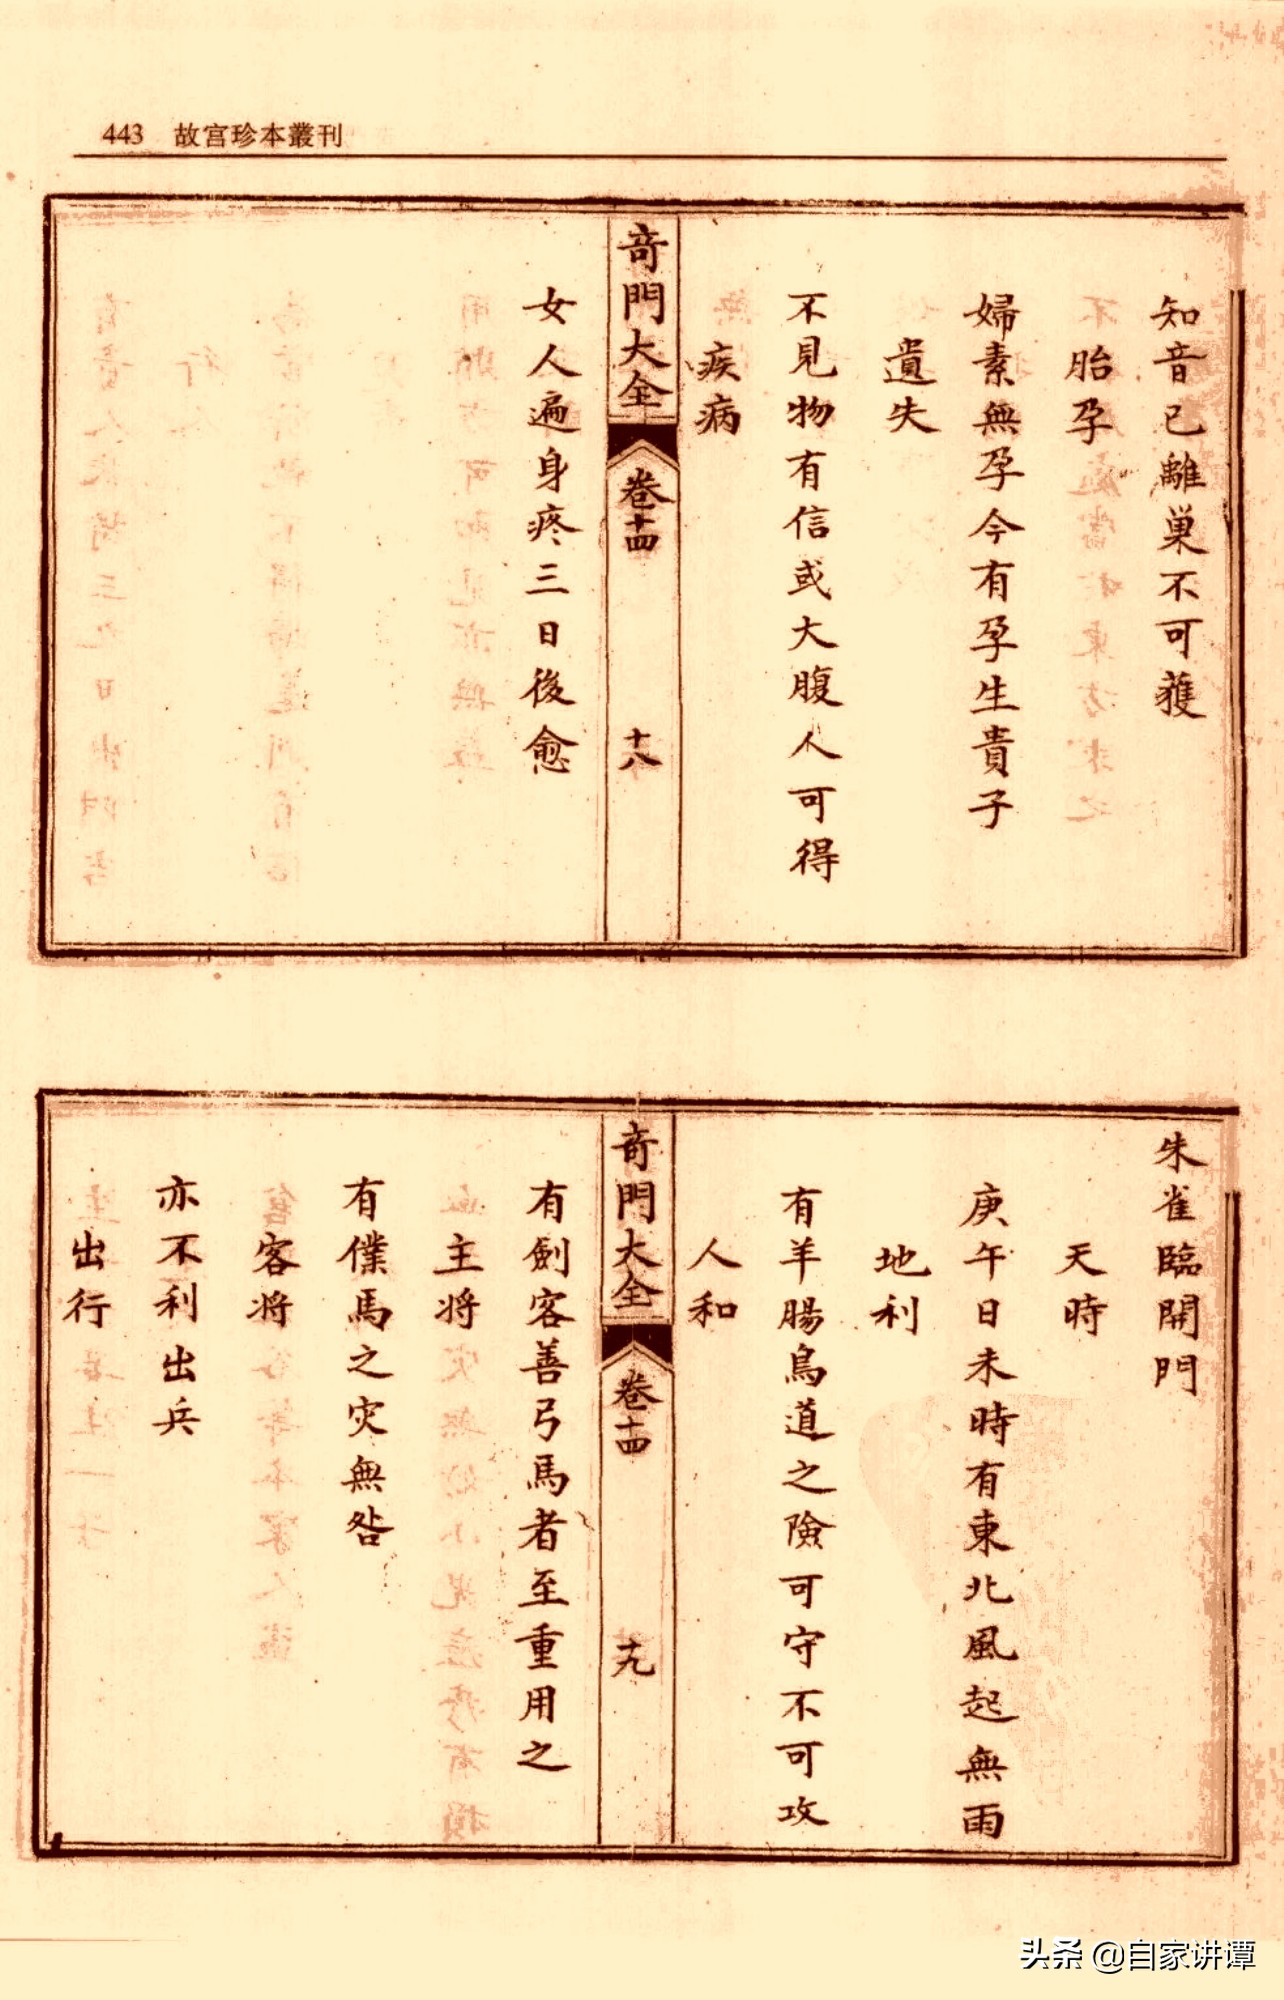 443 故宫珍本叢刊
知音已離巢不可獲
胎孕
婦素無孕今有孕生貴子
遺失
不見物有信或大腹人可得
疾病
奇門大全 卷十四 十八
女人遍身疼三日後愈
朱雀臨開門
天時
庚午日未時有東北風起無雨
地利
有羊腸鳥道之險可守不可攻
人和
奇門大全 卷十四 十九
有劍客善弓馬者至重用之
主将
有僕馬之灾無咎
客将
亦不利出兵
出行
头条 @自家讲谭